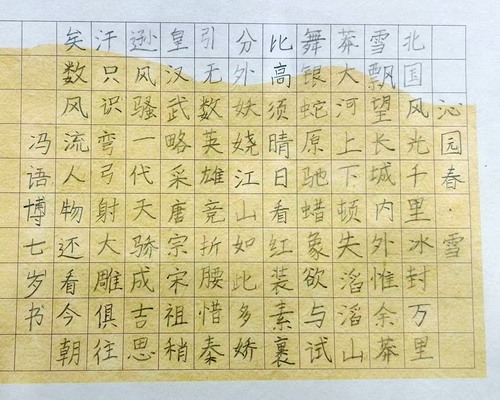 沁园春·雪
北国风光千里冰封万里
雪飘望长城内外惟余莽
莽大河上下顿失滔滔山
舞银蛇原驰蜡象欲与试
比高须晴日看红装素裹
分外妖娆江山如此多娇
引无数英雄竞折腰惜秦
皇汉武略采唐宗宋祖稍
逊风骚一代天骄成吉思
汗只识弯弓射大雕俱往
矣数风流人物还看今朝
冯语博七岁书